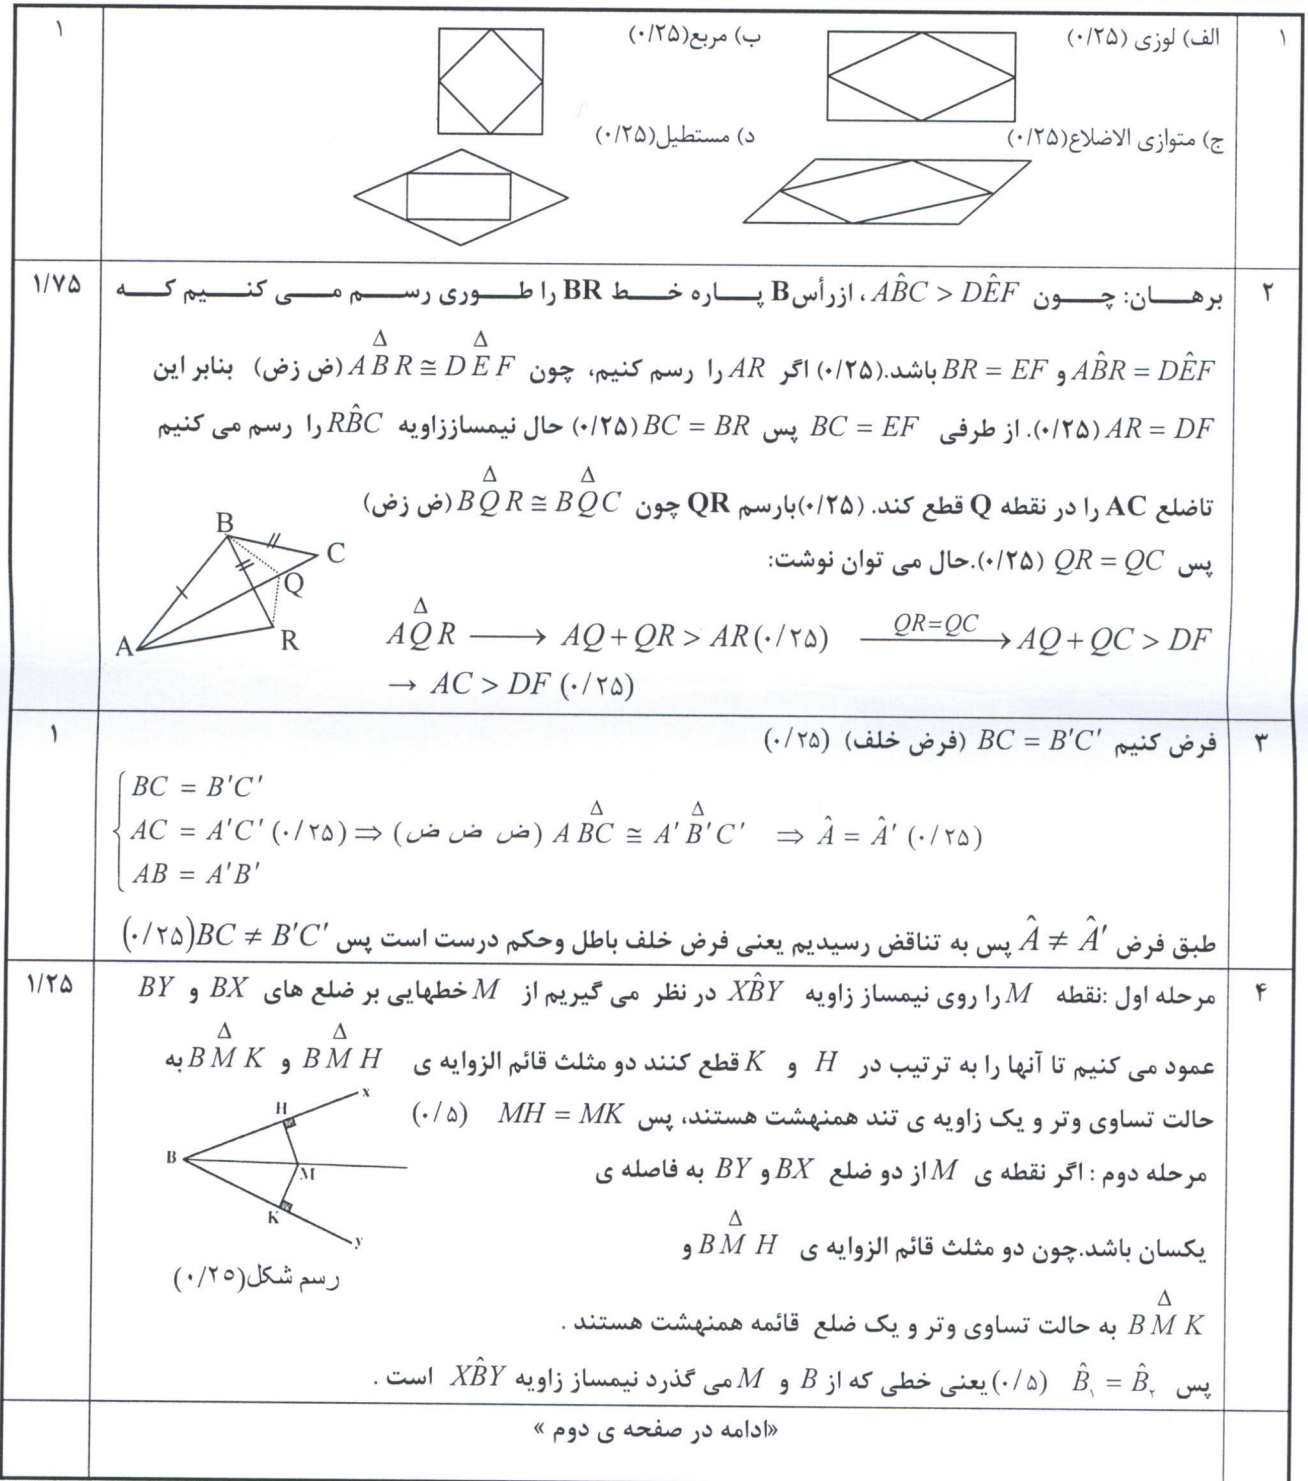 ۱
الف) لوزی (۰/۲۵)
ب) مربع(۰/۲۵)
۱
ج) متوازی الاضلاع(۰/۲۵)
د) مستطیل(۰/۲۵)
۲
برهان: چون AB̂C > DÊF ، ازرأس B پاره خط BR را طوری رسم می کنیم که
۱/۷۵
AB̂R = DÊF و BR = EF باشد.(۰/۲۵) اگر AR را رسم کنیم، چون ABR ≅ DEF (ض زض) بنابر این
Δ Δ
AR = DF (۰/۲۵). از طرفی BC = EF پس BC = BR (۰/۲۵) حال نیمساززاویه RB̂C را رسم می کنیم
تاضلع AC را در نقطه Q قطع کند. (۰/۲۵)بارسم QR چون BQR ≅ BQC (ض زض)
Δ Δ
پس QR = QC (۰/۲۵).حال می توان نوشت:
Δ
AQR ⟶ AQ + QR > AR (۰/۲۵) QR=QC ⟶ AQ + QC > DF
→ AC > DF (۰/۲۵)
B
C
Q
A
R
۳
فرض کنیم BC = B′C′ (فرض خلف) (۰/۲۵)
۱
BC = B′C′
AC = A′C′ (۰/۲۵) ⇒ (ض ض ض) ABC ≅ A′B′C′ ⇒ Â = Â′ (۰/۲۵)
Δ Δ
AB = A′B′
طبق فرض Â ≠ Â′ پس به تناقض رسیدیم یعنی فرض خلف باطل وحکم درست است پس BC ≠ B′C′ (۰/۲۵)
۴
مرحله اول :نقطه M را روی نیمساز زاویه XB̂Y در نظر می گیریم از M خطهایی بر ضلع های BX و BY
۱/۲۵
عمود می کنیم تا آنها را به ترتیب در H و K قطع کنند دو مثلث قائم الزوایه ی BMH و BMK به
Δ Δ
حالت تساوی وتر و یک زاویه ی تند همنهشت هستند، پس MH = MK (۰/۵)
مرحله دوم : اگر نقطه ی M از دو ضلع BX و BY به فاصله ی
یکسان باشد.چون دو مثلث قائم الزوایه ی BMH و
Δ
BMK به حالت تساوی وتر و یک ضلع قائمه همنهشت هستند .
Δ
پس B̂₁ = B̂₂ (۰/۵) یعنی خطی که از B و M می گذرد نیمساز زاویه XB̂Y است .
x
H
B
M
K
y
رسم شکل(۰/۲۵)
«ادامه در صفحه ی دوم »